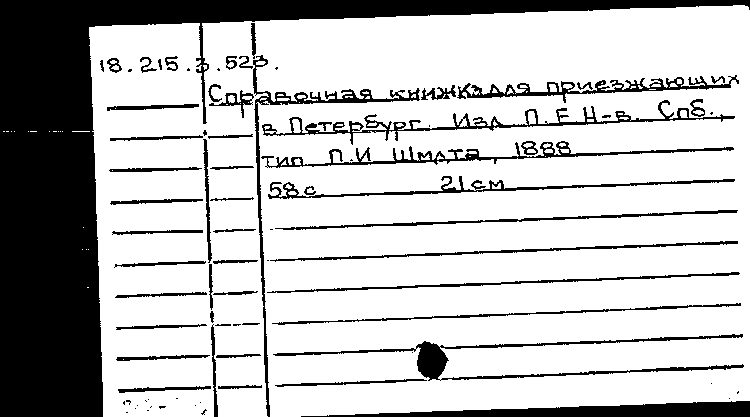 18.215.3.523.
Справочная книжка для приезжающих
в Петербург. Изд. П.Е.Н-в. Спб.,
тип. П.И. Шмидта, 1888
58 с. 21 см